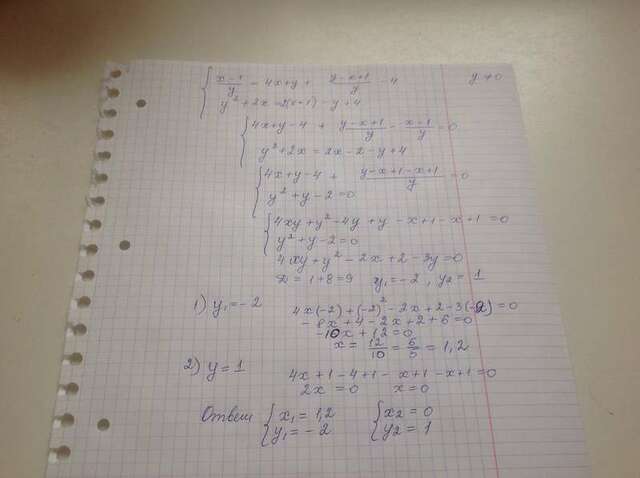 { x-1/y - 4x+y+ y-x+1/y = 4    y≠0
y²+2x=2(x+1)-y+4
{ 4x+y-4 + y-x+1/y - x-1/y = 0
y²+2x=2x-2-y+4
{ 4x+y-4 + y-x+1-x+1/y = 0
y²+y-2=0
{ 4xy+y²-4y+y-x+1-x+1=0
y²+y-2=0
4xy+y²-2x+2-3y=0
D=1+8=9 y₁=-2, y₂=1
1) y₁=-2
4x(-2)+(-2)²-2x+2-3(-2)=0
-8x+4-2x+2+6=0
-10x+12=0
x=12/10=6/5=1,2
2) y=1
4x+1-4+1-x+1-x+1=0
2x=0 x=0
Ответ { x₁=1,2 { x₂=0
y₁=-2 y₂=1